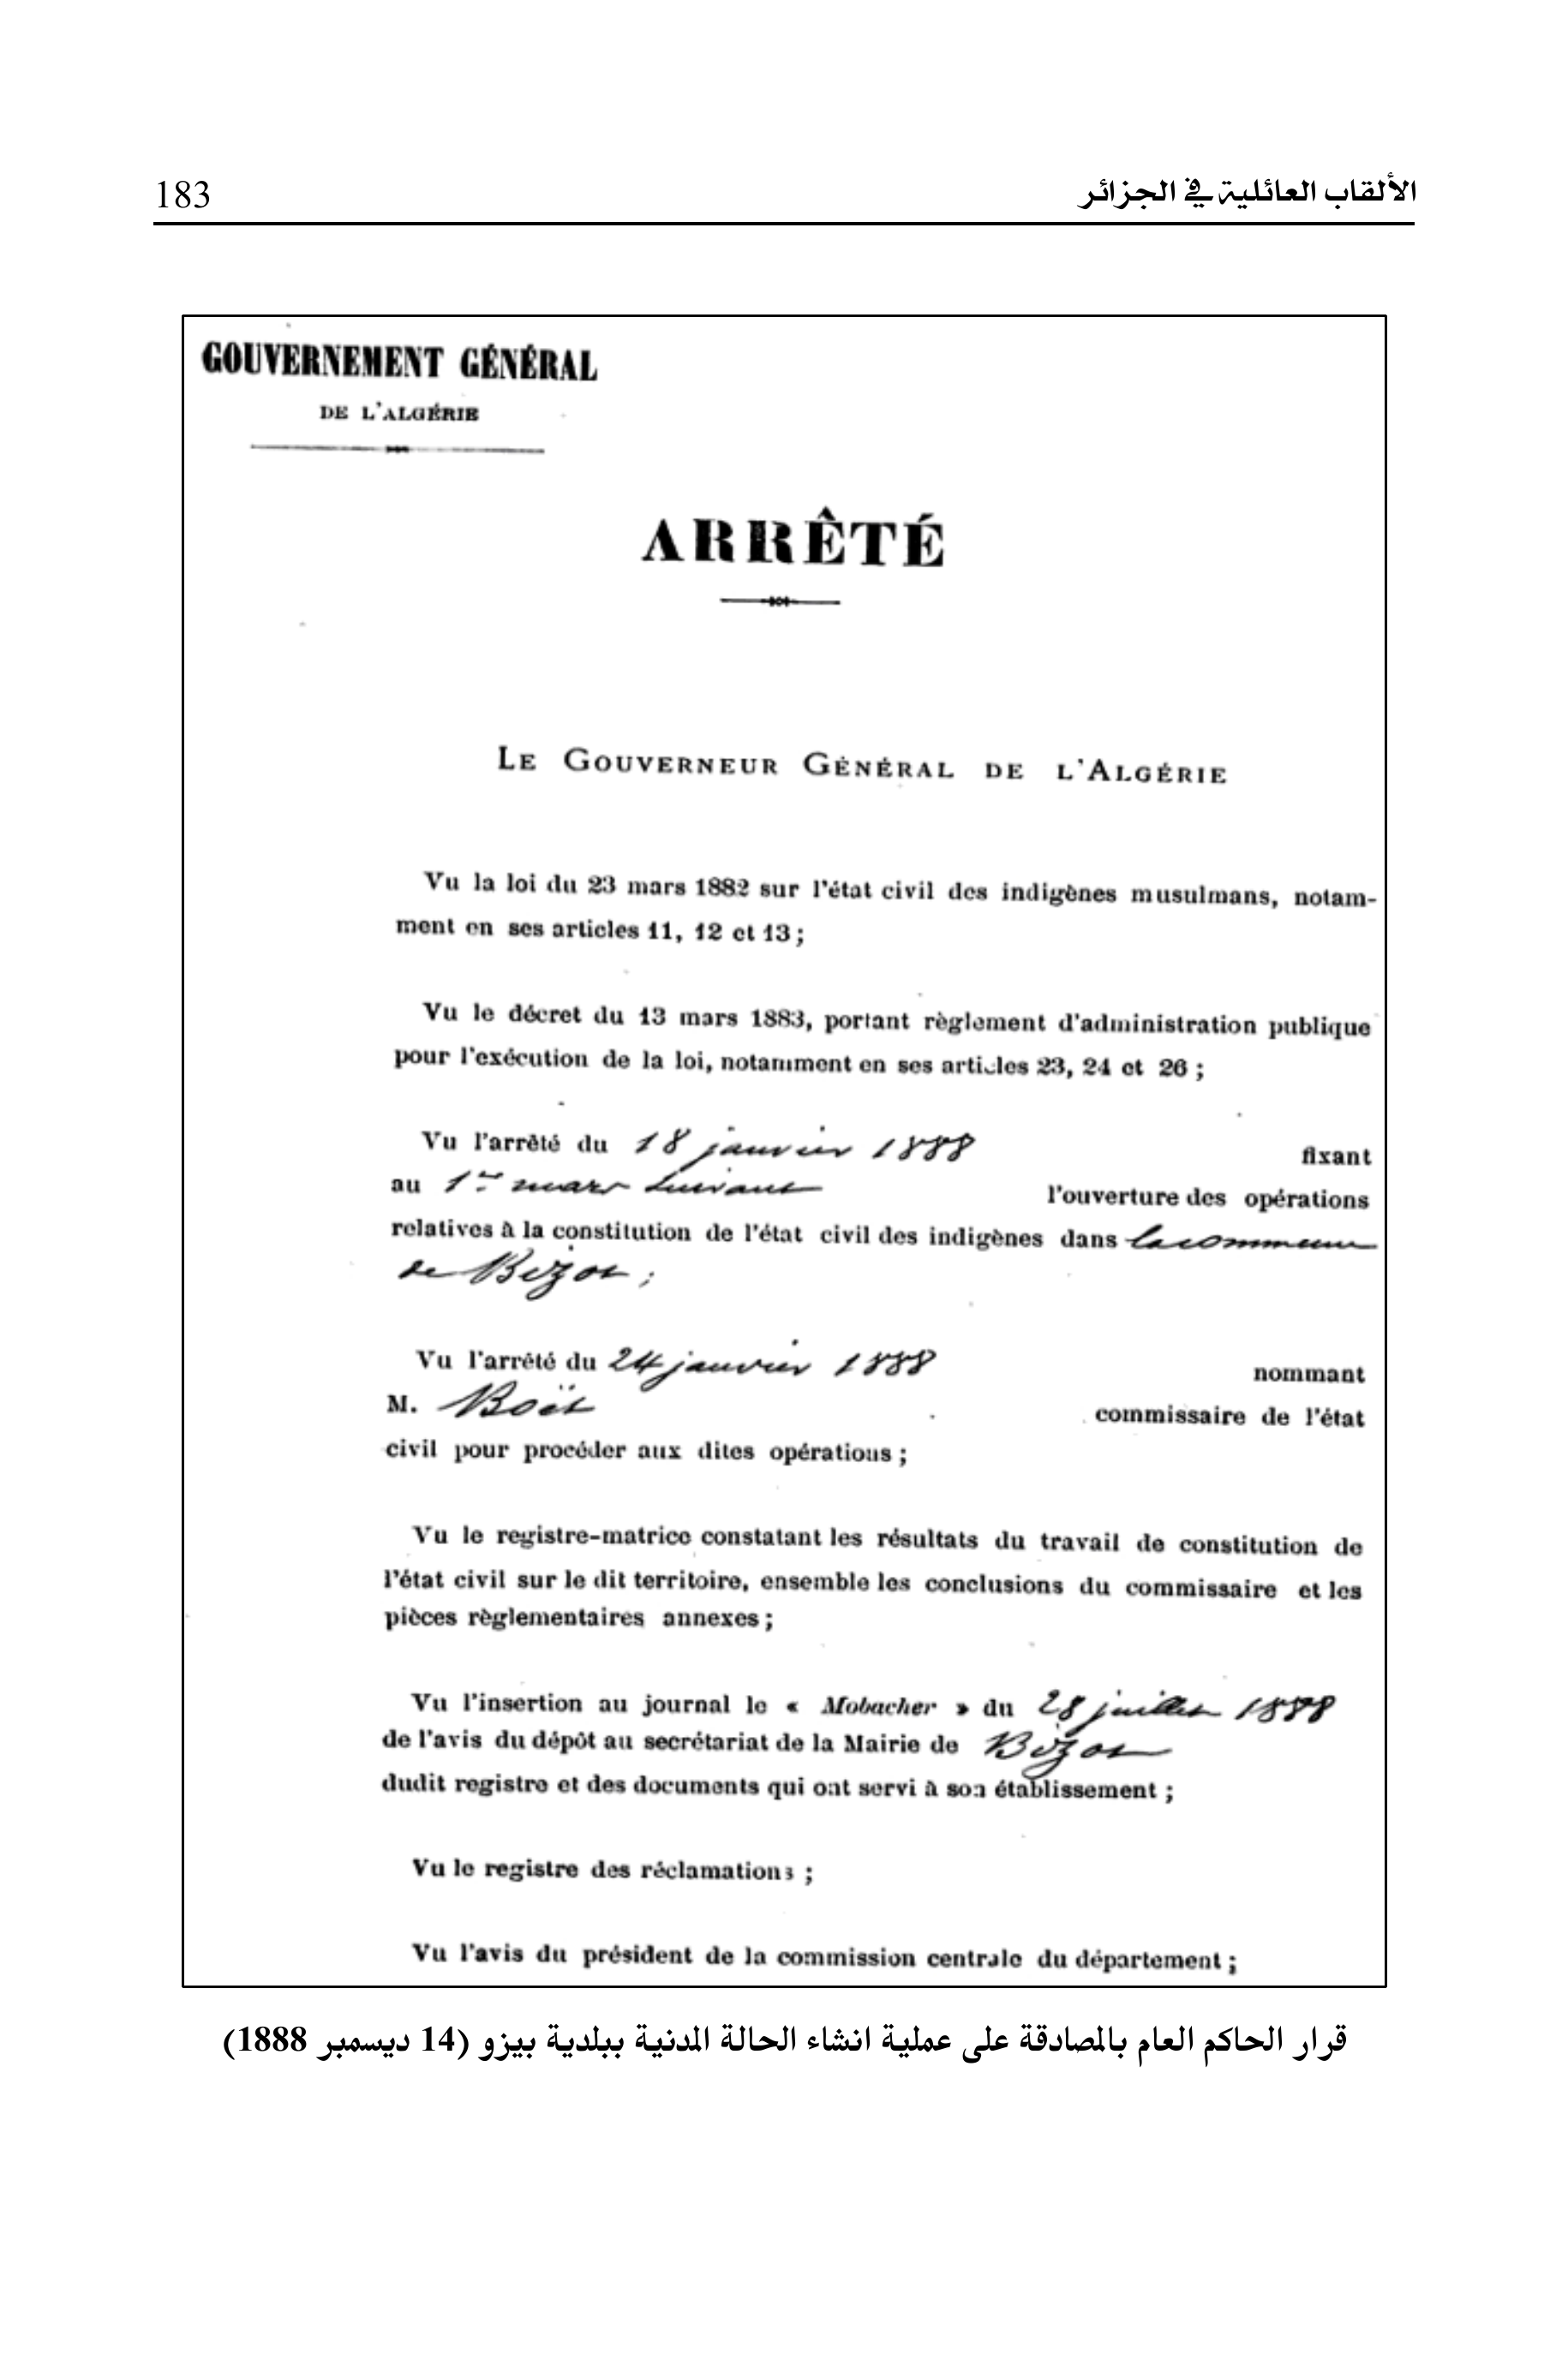 الألقاب العائلية في الجزائر 183
GOUVERNEMENT GÉNÉRAL
DE L'ALGÉRIE
ARRÊTÉ
LE GOUVERNEUR GÉNÉRAL DE L'ALGÉRIE
Vu la loi du 23 mars 1882 sur l'état civil des indigènes musulmans, notam-
ment en ses articles 11, 12 et 13 ;
Vu le décret du 13 mars 1883, portant règlement d'administration publique
pour l'exécution de la loi, notamment en ses articles 23, 24 et 26 ;
Vu l'arrêté du 18 janvier 1888 fixant
au 1er mars suivant l'ouverture des opérations
relatives à la constitution de l'état civil des indigènes dans la commune
de Bizot ;
Vu l'arrêté du 24 janvier 1888 nommant
M. Boët commissaire de l'état
civil pour procéder aux dites opérations ;
Vu le registre-matrice constatant les résultats du travail de constitution de
l'état civil sur le dit territoire, ensemble les conclusions du commissaire et les
pièces règlementaires annexes ;
Vu l'insertion au journal le « Mobacher » du 28 juillet 1888
de l'avis du dépôt au secrétariat de la Mairie de Bizot
dudit registre et des documents qui ont servi à son établissement ;
Vu le registre des réclamations ;
Vu l'avis du président de la commission centrale du département ;
قرار الحاكم العام بالمصادقة على عملية انشاء الحالة المدنية ببلدية بيزو (14 ديسمبر 1888)